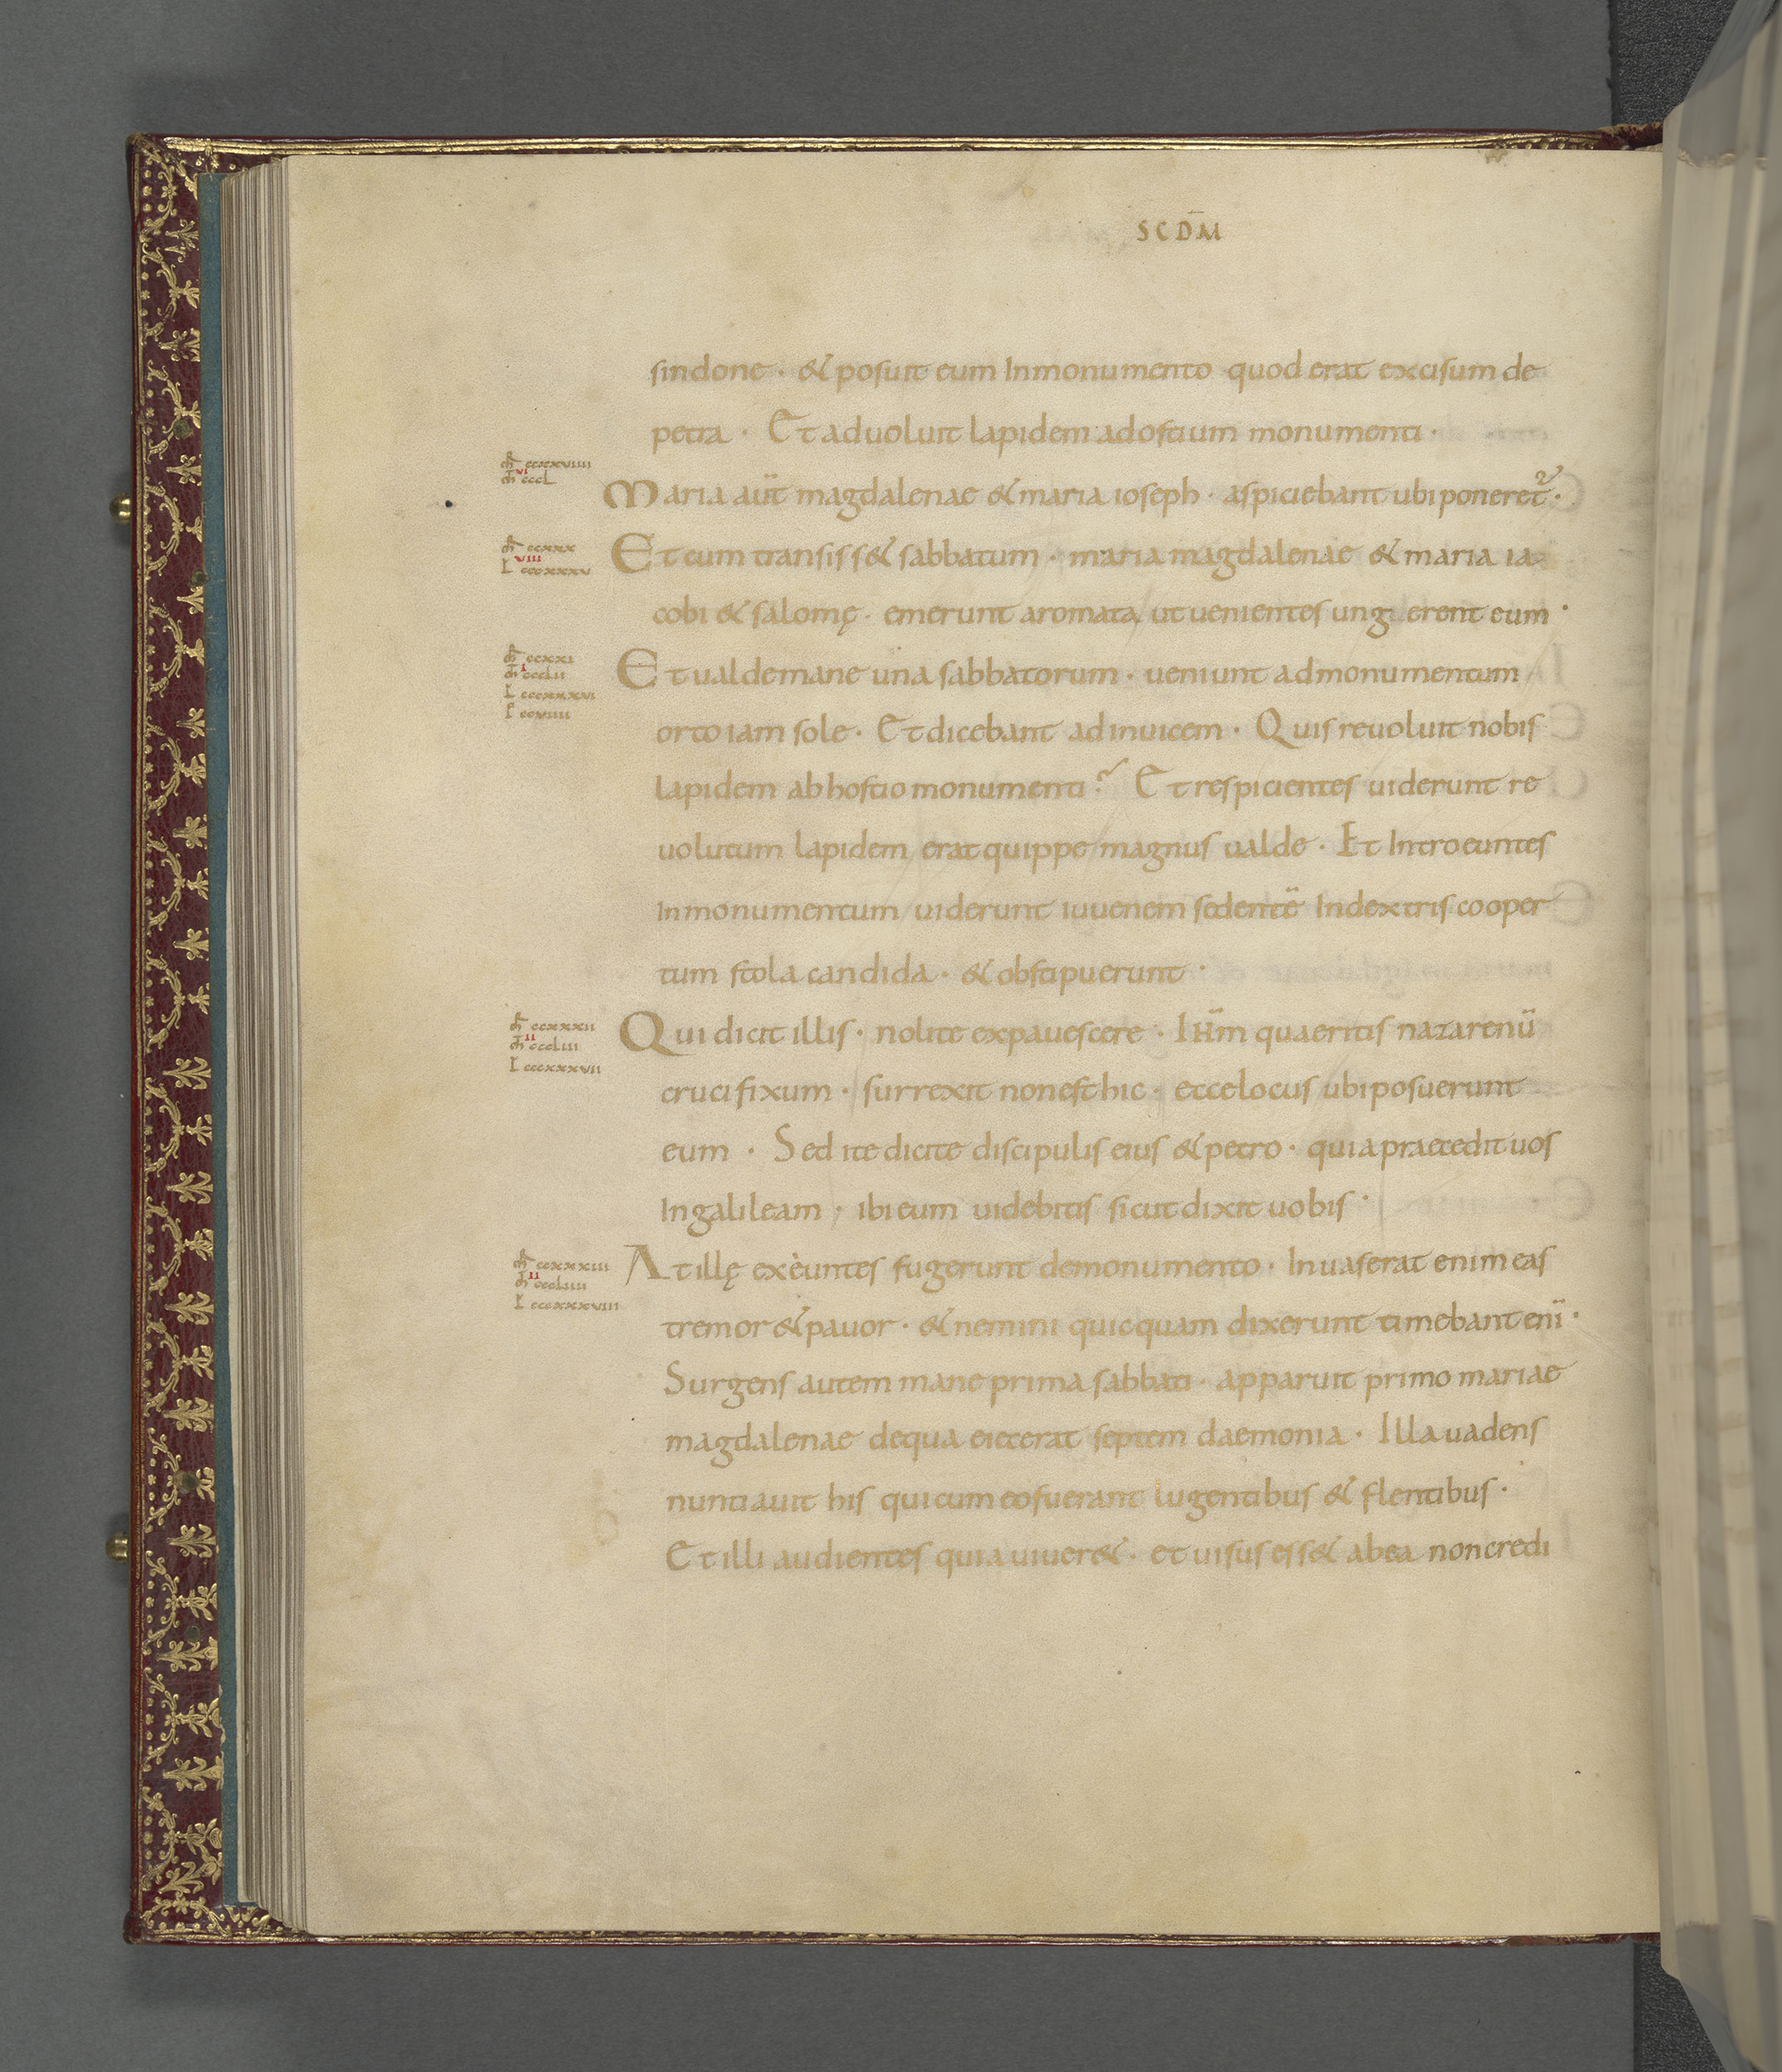 SCDM̄
sindone · & posuit eum Inmonumento quod erat excisum de
petra · Et aduoluit lapidem adostium monumenti ·
m̄r ccxxviiii
vi
m̄t cccl
Maria aūt magdalenae & maria ioseph · aspiciebant ubi poneret᷑ ·
m̄r ccxxx
viii
L cccxxxv
Et cum transiss& sabbatum · maria magdalenae & maria ia
cobi & salomę · emerunt aromata ut uenientes unguerent eum ·
m̄r ccxxxi
i
m̄t ccclii
L cccxxxvi
I ccviiii
Et ualdemane una sabbatorum · ueniunt admonumentum
orto iam sole · Et dicebant adinuicem · Quis reuoluit nobis
lapidem abhostio monumenti? Et respicientes uiderunt re
uolutum lapidem erat quippe magnus ualde · Et Introeuntes
Inmonumentum uiderunt iuuenem sedentē Indextris cooper
tum stola candida · & obstipuerunt ·
m̄r ccxxxii
ii
m̄t cccliii
L cccxxxvii
Qui dicit illis · nolite expauescere · IHm̄ quaeritis nazarenū
crucifixum · surrexit nonest hic · ecce locus ubi posuerunt
eum · Sed ite dicite discipulis eius & petro · quia praecedit uos
Ingalileam · ibi eum uidebitis sicut dixit uobis ·
m̄r ccxxxiii
ii
m̄t cccliiii
L cccxxxviii
At illę exèuntes fugerunt demonumento · Inuaserat enim eas
tremor & pauor · & nemini quicquam dixerunt timebant enī ·
Surgens autem mane prima sabbati · apparuit primo mariae
magdalenae dequa eiecerat septem daemonia · Illa uadens
nuntiauit his qui cum eo fuerant lugentibus & flentibus ·
Et illi audientes quia uiuer& · et uisus ess& abea noncredi